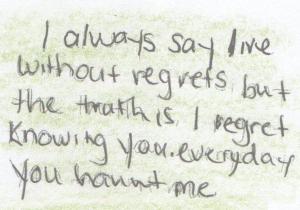 I always say live
without regrets but
the truth is, I regret
Knowing you. everyday
you haunt me